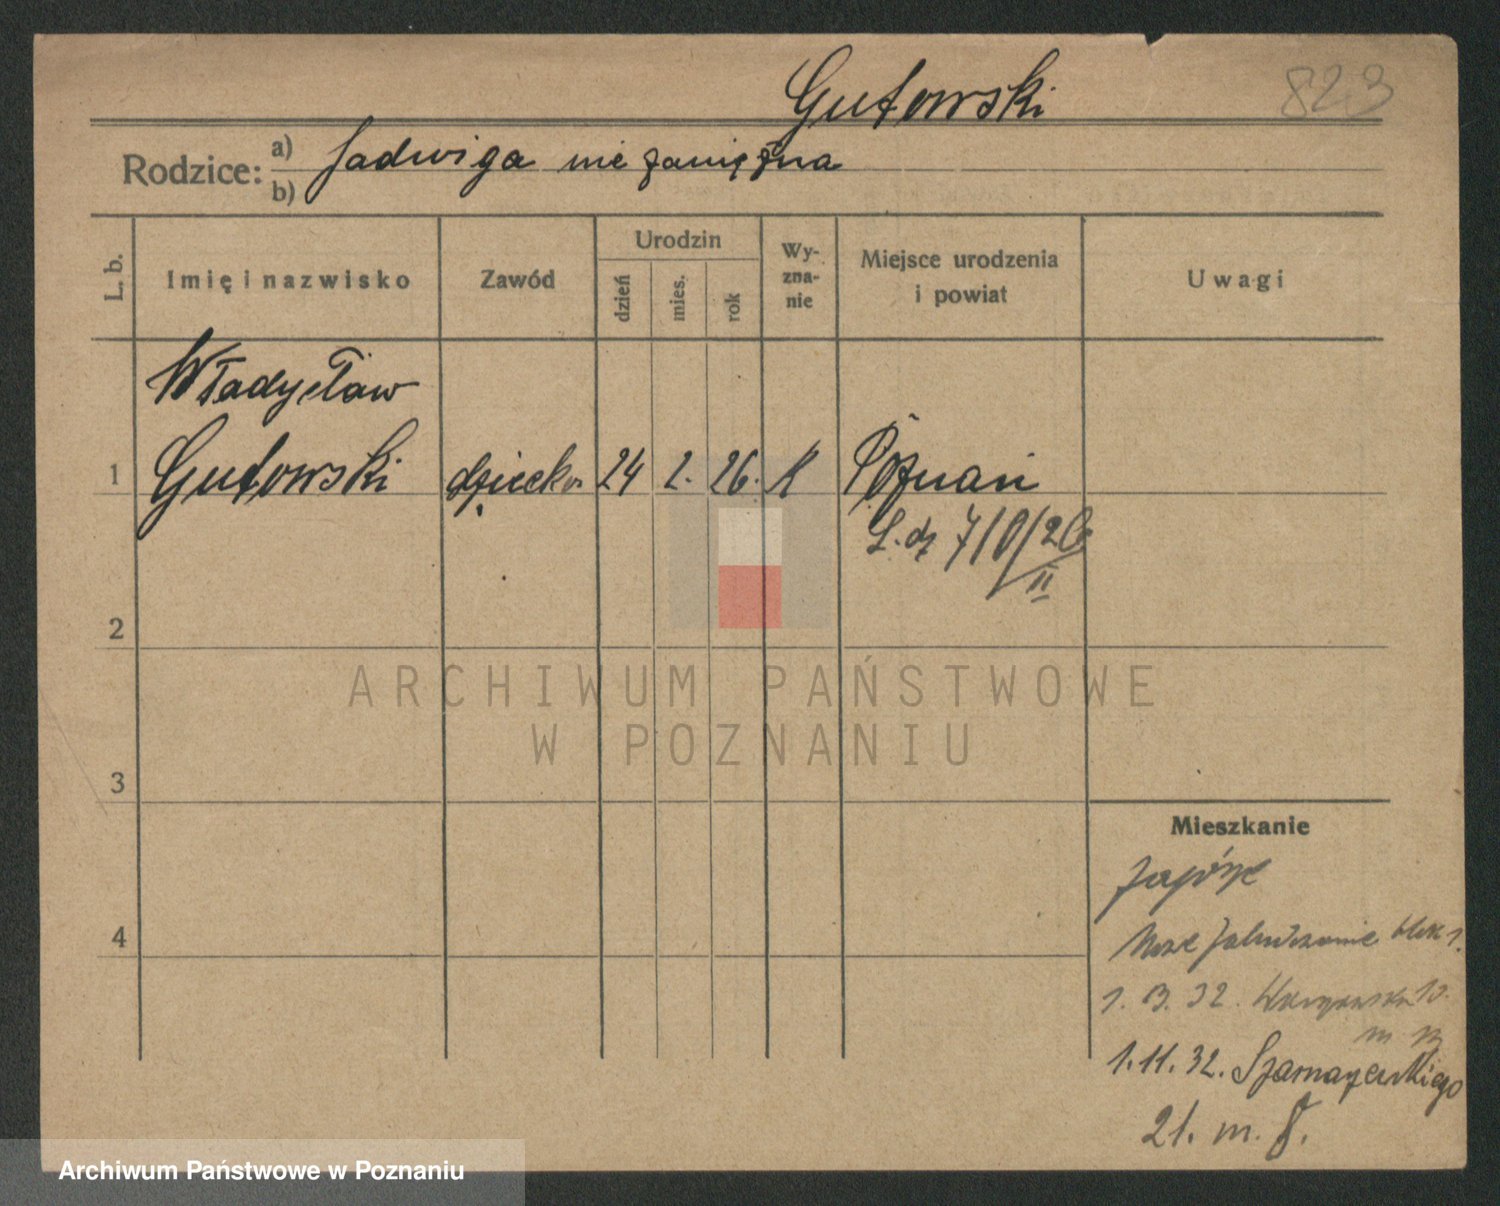 Gutowski 823
Rodzice: a) Jadwiga niezamężna
b)
L. b. Imię i nazwisko Zawód Urodzin dzień mies. rok Wy-zna-nie Miejsce urodzenia i powiat Uwagi
Władysław
1 Gutowski dziecko 24 2. 26. K Poznań
L. dz 710/26
II
2
ARCHIWUM PAŃSTWOWE
W POZNANIU
3
Mieszkanie
Zagórze
4
1. 3. 32.
1.11.32. Szamarzewskiego
21. m. 8.
Archiwum Państwowe w Poznaniu